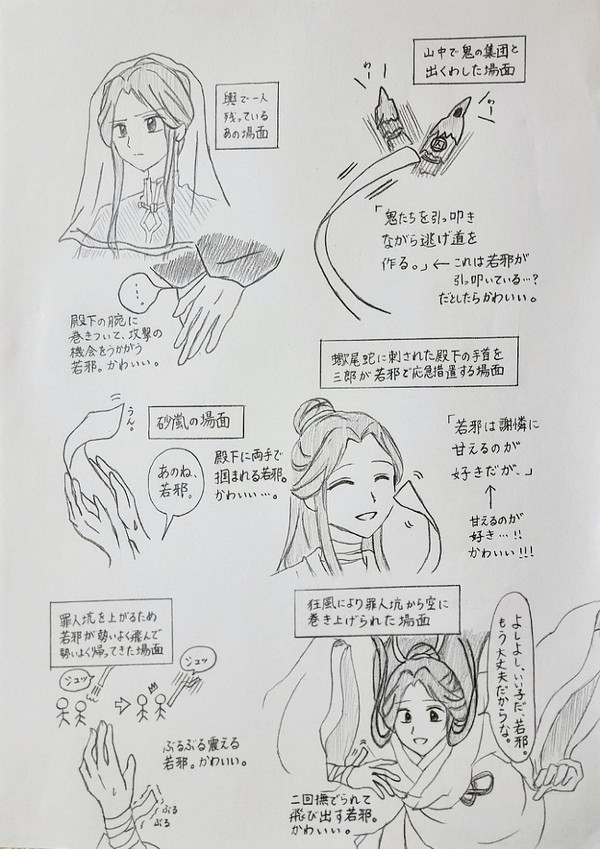 輿で一人
残っている
あの場面
…。
殿下の腕に
巻きついて、攻撃の
機会をうかがう
若邪。かわいい。
山中で鬼の集団と
出くわした場面
わー
わー
「鬼たちを引っ叩き
ながら逃げ道を
作る。」← これは若邪が
引っ叩いている…?
だとしたらかわいい。
砂嵐の場面
うん。
あのね、
若邪。
殿下に両手で
掴まれる若邪。
かわいい…。
蠍尾蛇に刺された殿下の手首を
三郎が若邪で応急措置する場面
「若邪は謝憐に
甘えるのが
好きだが、」
↑
甘えるのが
好き…!!
かわいい!!!
罪人坑を上がるため
若邪が勢いよく飛んで
勢いよく帰ってきた場面
ジュッ
ジュッ
ぶるぶる震える
若邪。かわいい。
ぶる
ぶる
狂風により罪人坑から空に
巻き上げられた場面
よしよし、いい子だ、若邪。
もう大丈夫だからな。
二回撫でられて
飛び出す若邪。
かわいい。